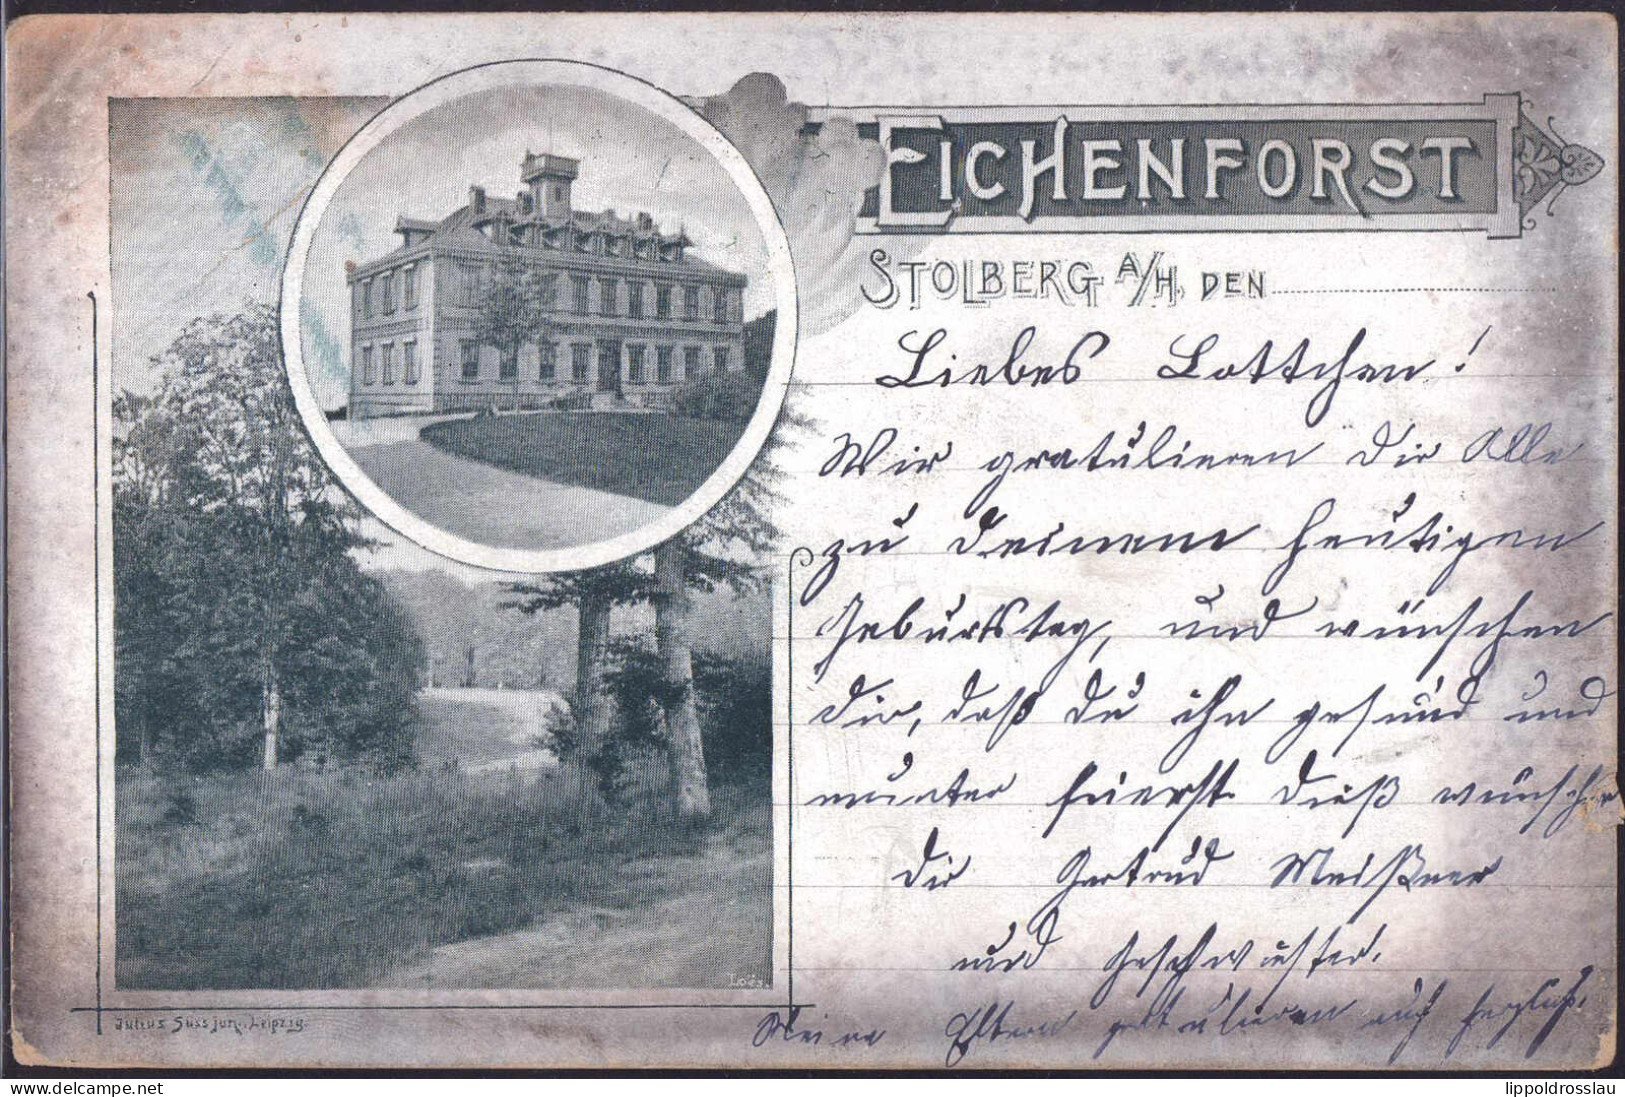 EICHENFORST
STOLBERG A/H. DEN
Liebes Lottchen!
Wir gratulieren Dir Alle
zu Deinem heutigen
Geburtstag, und wünschen
Dir, daß Du ihn gesund und
munter feierst. Dieß wünschen
Dir Gertrud Meißner
und Geschwister.
Meine Eltern gratulieren auch herzlich.
Loës.
Julius Süss jun. Leipzig
lippoldrosslau